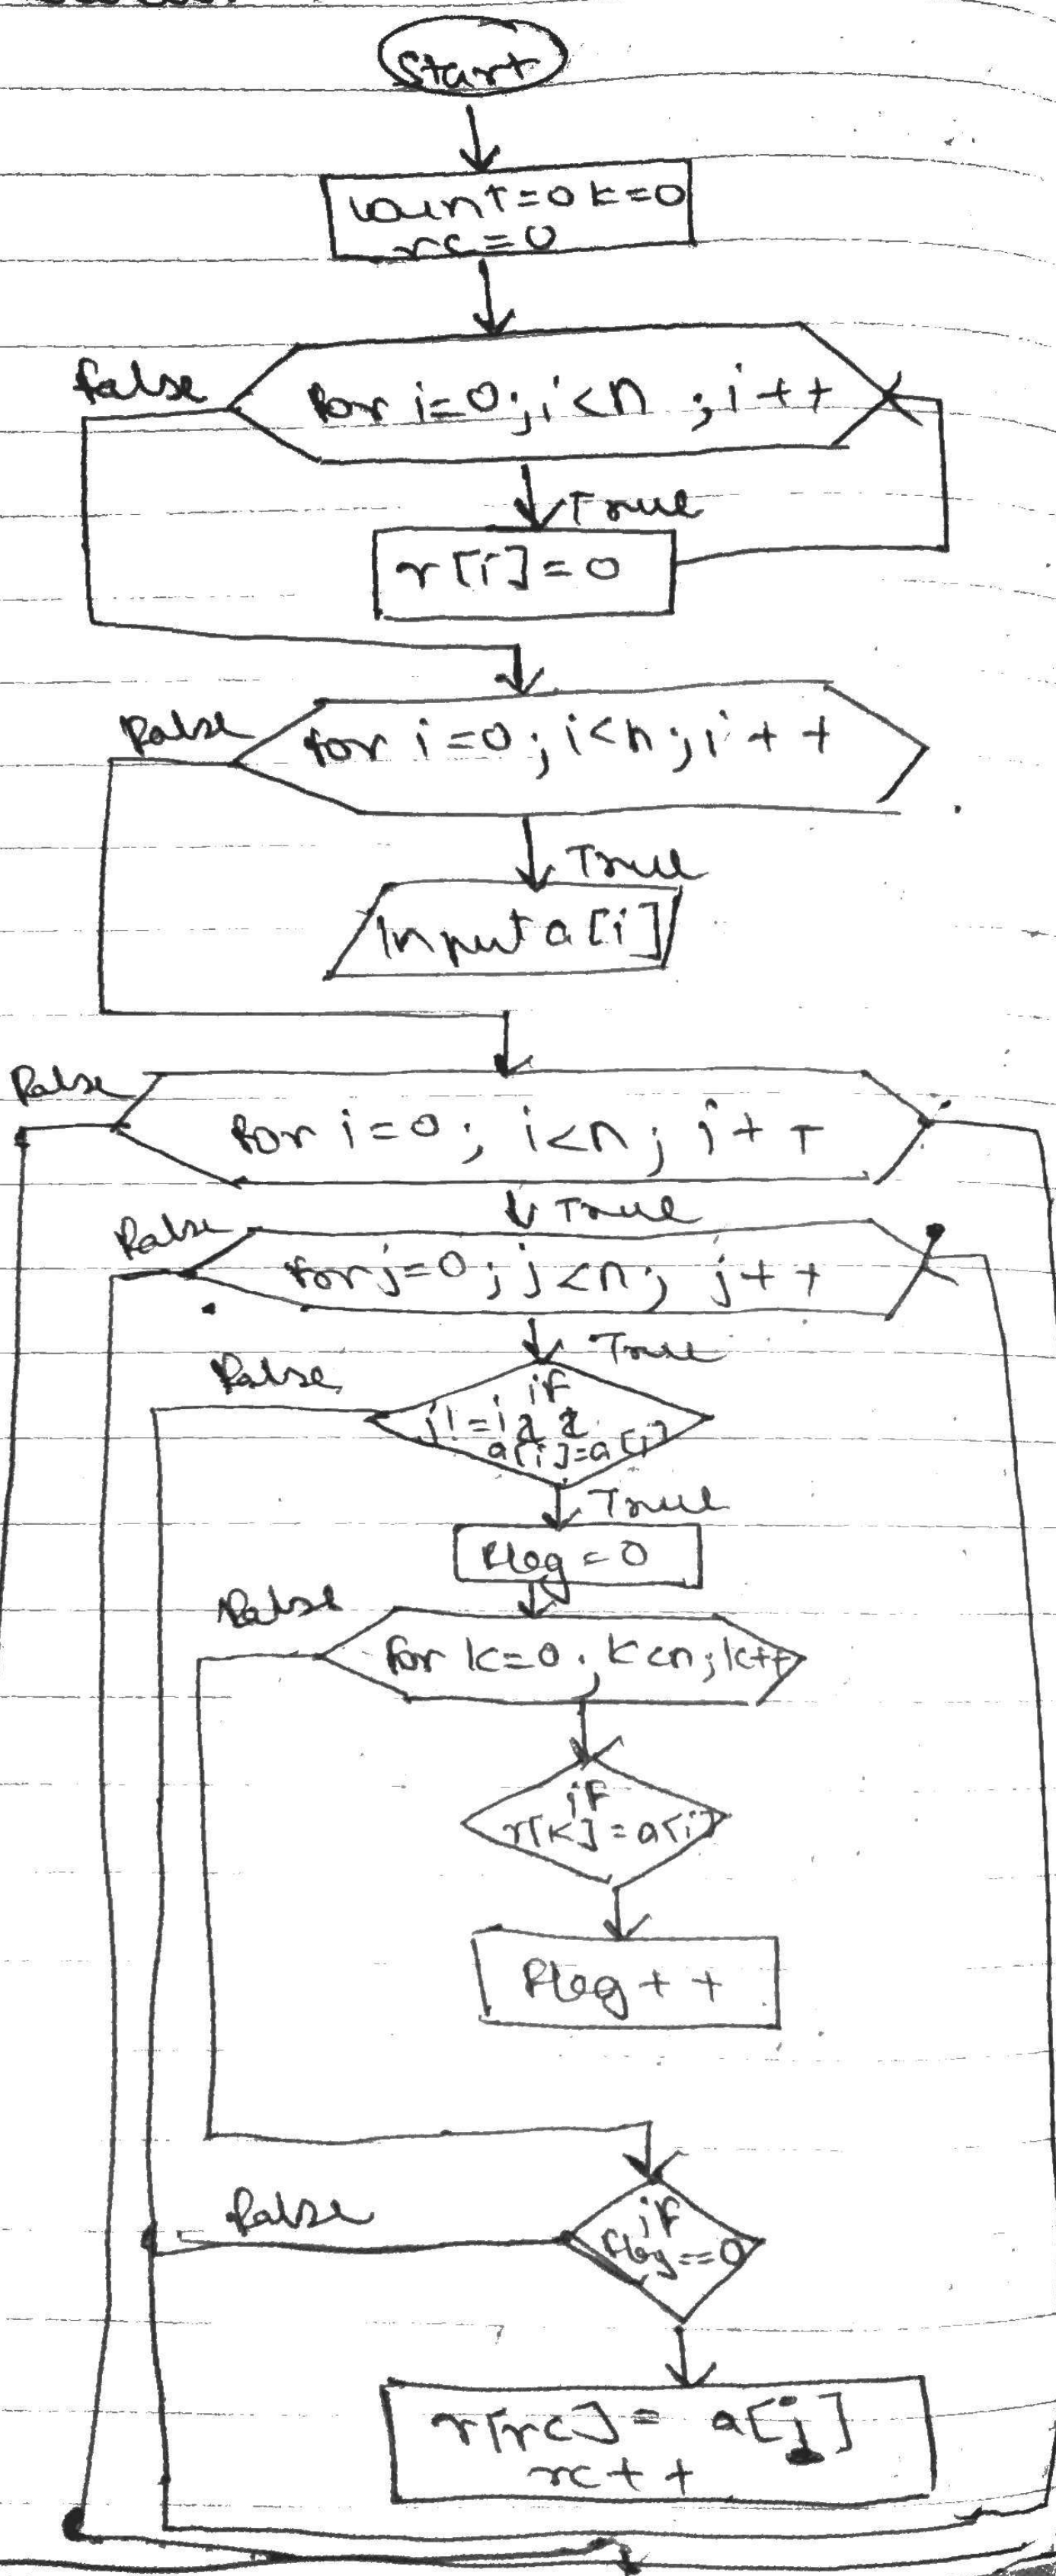 Start
count=0 k=0
rc=0
false
for i=0; i<n ; i++
True
r[i]=0
False
for i=0; i<n; i++
True
Input a[i]
False
for i=0; i<n; i++
True
False
for j=0; j<n; j++
True
False
if
j!=i &&
a[i]=a[j]
True
flag=0
False
for k=0; k<n; k++
if
r[k]=a[i]
flag++
False
if
flag==0
r[rc]= a[j]
rc++